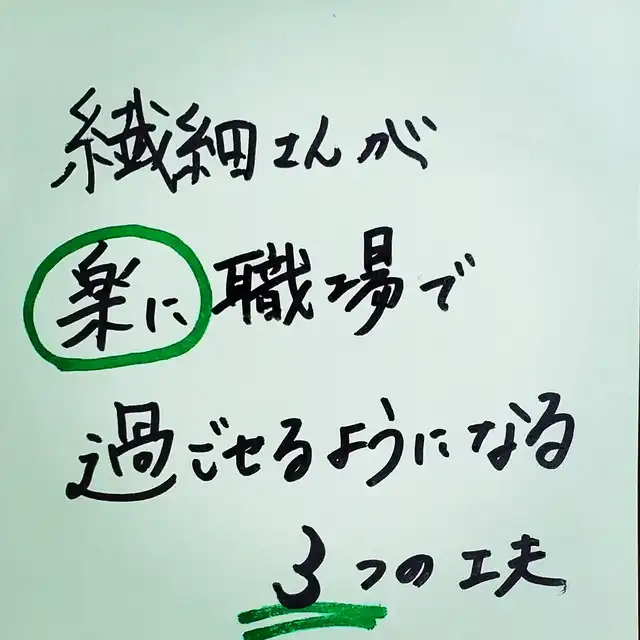 繊細さんが
楽に職場で
過ごせるようになる
3つの工夫